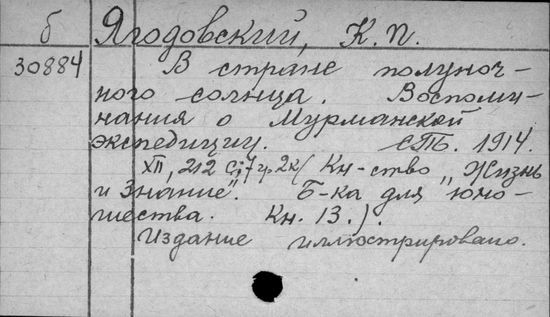 б Ягодовский, К. П.
30884 В стране полуноч-
ного солнца. Воспоми-
нания о Мурманской
экспедиции. СПБ. 1914.
XII, 212 с; 7 гр. 2к ( Кн-ство „Жизнь
и Знание". Б-ка для юно-
шества. Кн. 13.).
Издание иллюстрировано.